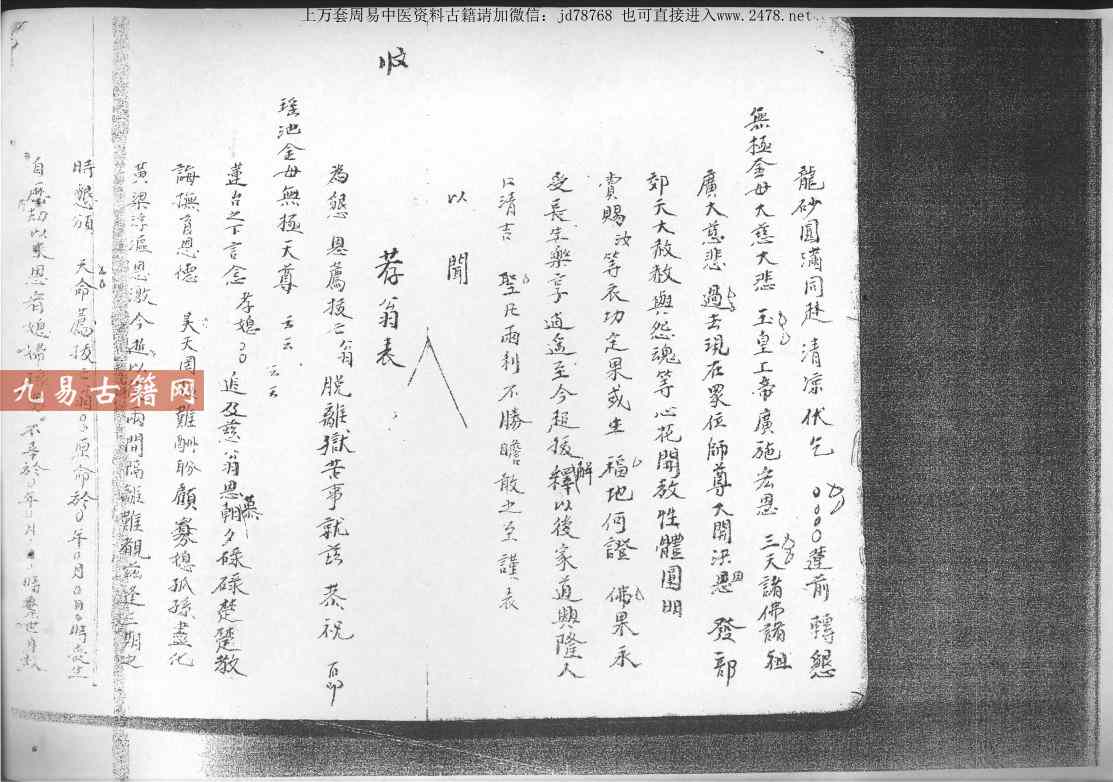 上万套周易中医资料古籍请加微信：jd78768 也可直接进入www.2478.net.
龍砂圓滿同赴 清凉伏乞 〇〇〇〇蓮前 轉懇
無極金母大慈大悲 玉皇上帝廣施宏恩 三天諸佛諸祖
廣大慈悲 過去現在眾位師尊大開洪恩 發部
郊天大赦赦與怨魂等心花開放性體圓明
賞賜汝等衣功定果或生 福地何證 佛果永
受長生樂享逍遙至今超拔解釋以後家道興隆人
口清吉 聖凡兩利不勝瞻之至謹表
以 聞
荐翁表
為懇 恩薦拔亡翁脫離獄苦事就兹 恭祝 叩
瑤池金母無極天尊 云云
蓮台之下言念 孝媳〇〇 追及慈翁恩朝夕碌碌楚楚教
誨撫育恩德 昊天罔 難酬 顧寡媳孤孫盡化
黃梁浮漚恩 今 以 兩間隔離難觀兹逢三期之
時懇頒 天命薦拔亡翁 原命於〇年〇月〇日〇時
自 劫以來恩育媳婦 不幸於〇年〇月 時
九易古籍网